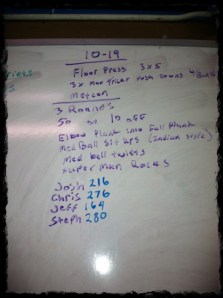 10-19
Floor Press 3x5
3x Max Tricep Push Downs w/ Band
Metcon
3 Rounds
50 on 10 off
Elbow Plank into Full Plank
Med Ball Sit ups (Indian Style)
Med ball twists
Super Man Raises
Josh 216
Chris 276
Jeff 164
Steph 280